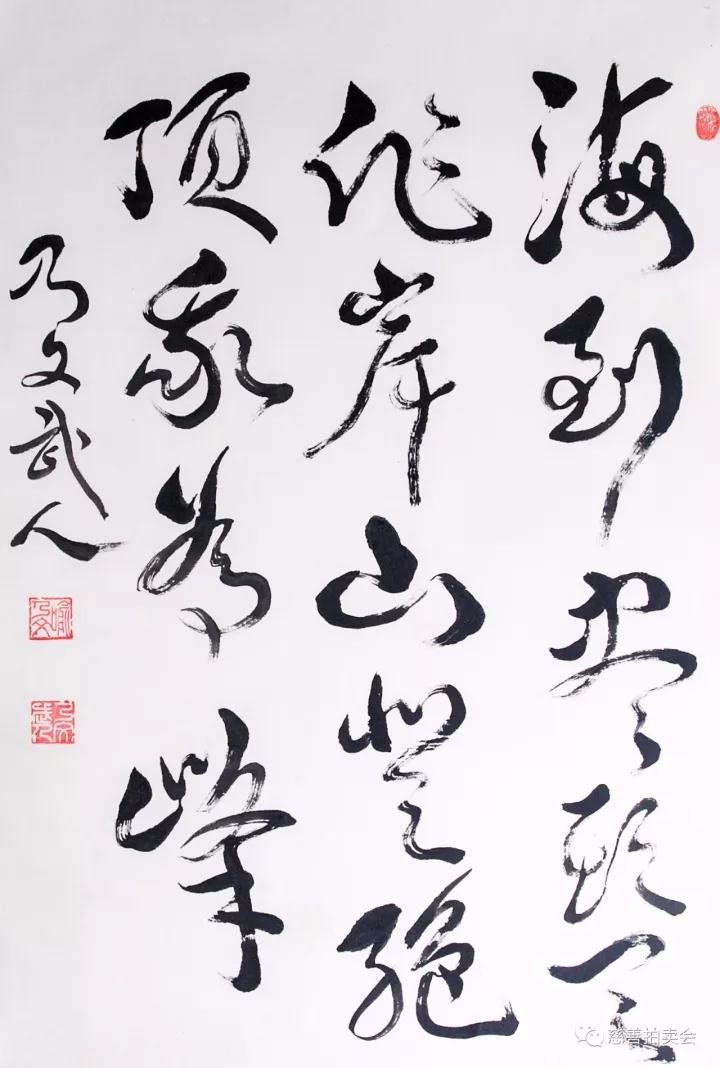 海到尽头天
作岸山登绝
顶我為峰
乃文武人
慈善拍卖会